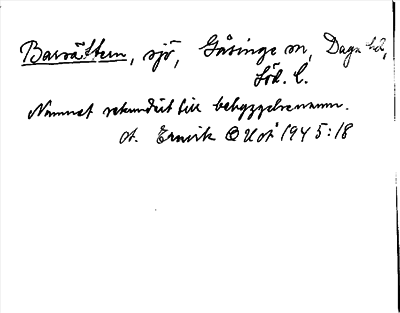 Barvättern, sjö, Gåsinge sn, Daga hd,
Söd. l.
Namnet sekundärt till bebyggelsenamn.
A. Ernvik Ortnamn 1945:18